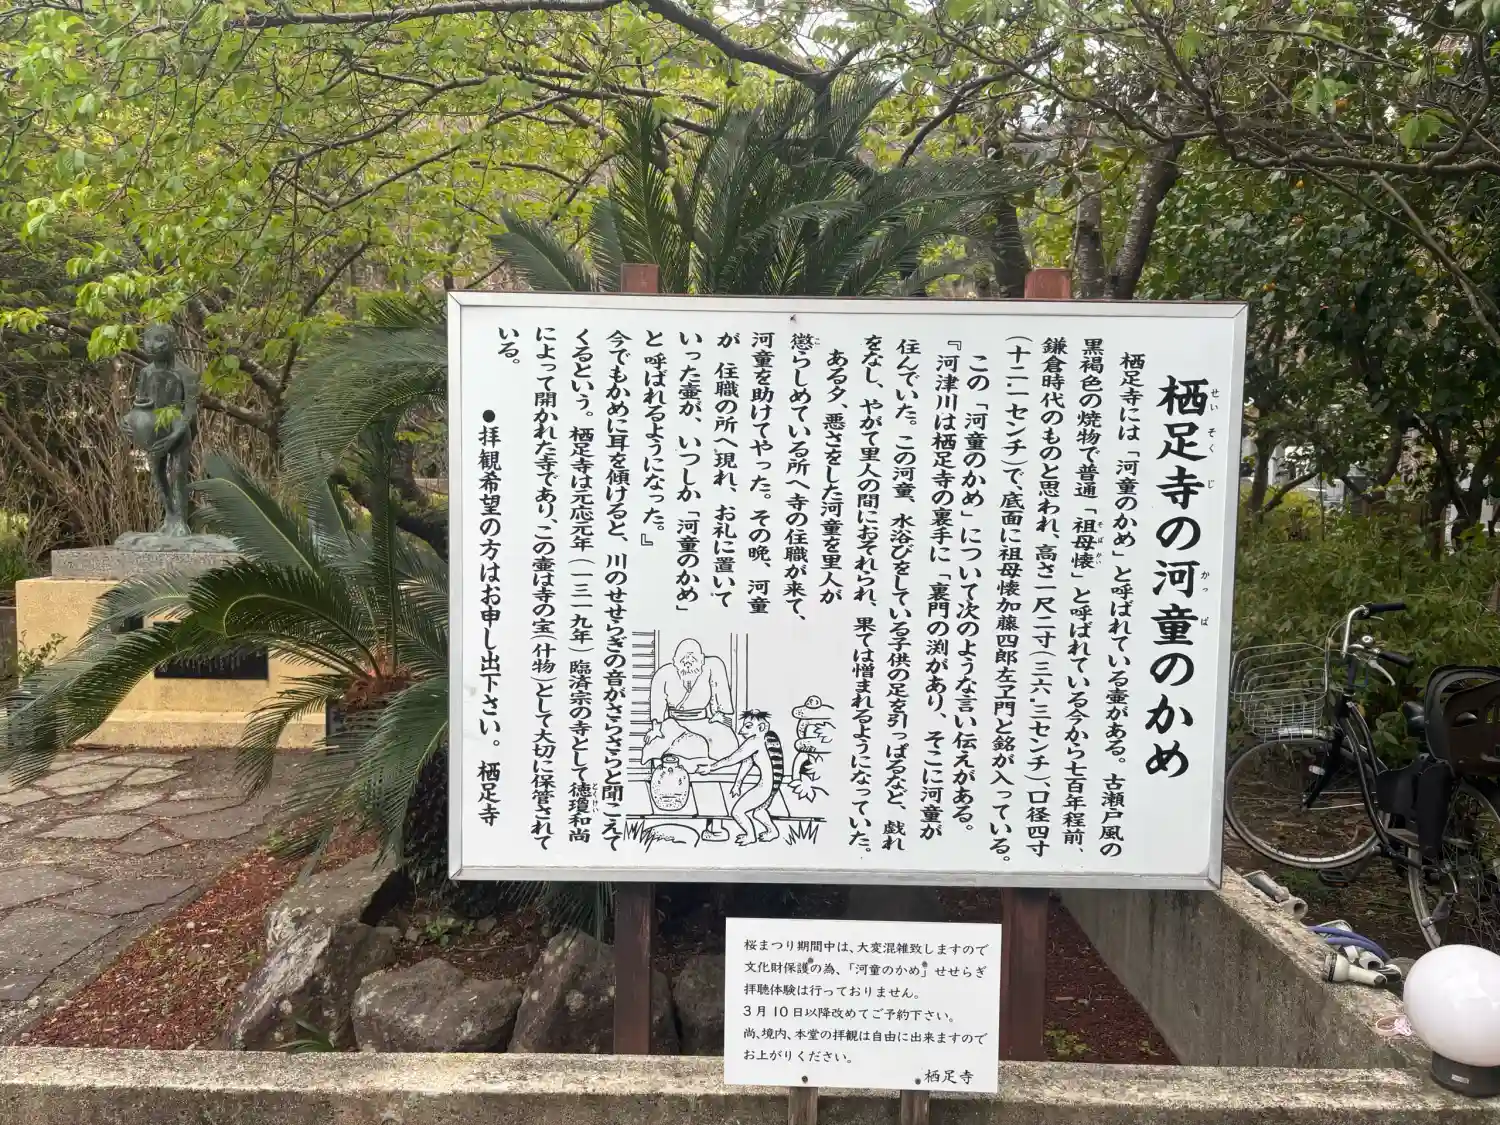 栖足寺の河童のかめ
せいそくじ かっぱ
栖足寺には「河童のかめ」と呼ばれている壷がある。古瀬戸風の
黒褐色の焼物で普通「祖母懐」と呼ばれている今から七百年程前、
そぼかい
鎌倉時代のものと思われ、高さ一尺二寸(三六・三センチ)、口径四寸
(十二・一センチ)で、底面に祖母懐加藤四郎左ヱ門と銘が入っている。
この「河童のかめ」について次のような言い伝えがある。
『河津川は栖足寺の裏手に「裏門の渕があり、そこに河童が
住んでいた。この河童、水浴びをしている子供の足を引っぱるなど、戯れ
をなし、やがて里人の間におそれられ、果ては憎まれるようになっていた。
ある夕、悪さをした河童を里人が
懲らしめている所へ寺の住職が来て、
こ
河童を助けてやった。その晩、河童
が 住職の所へ現れ、お礼に置いて
いった壷が、いつしか「河童のかめ」
と呼ばれるようになった。』
今でもかめに耳を傾けると、川のせせらぎの音がさらさらと聞こえて
くるという。栖足寺は元応元年(一三一九年)臨済宗の寺として徳瓊和尚
とくけい
によって開かれた寺であり、この壷は寺の宝(什物)として大切に保管されて
いる。
●拝観希望の方はお申し出下さい。 栖足寺
桜まつり期間中は、大変混雑致しますので
文化財保護の為、「河童のかめ」せせらぎ
拝聴体験は行っておりません。
3月10日以降改めてご予約下さい。
尚、境内、本堂の拝観は自由に出来ますので
お上がりください。
栖足寺